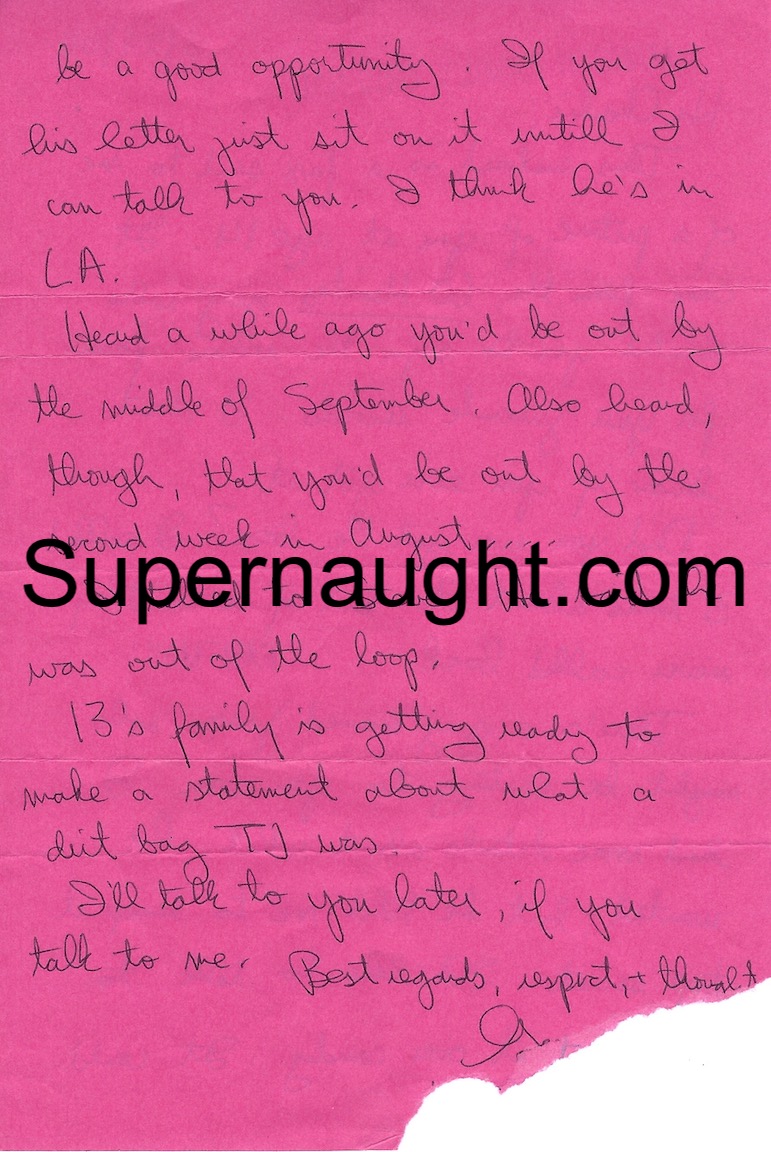 be a good opportunity. If you get
his letter just sit on it untill I
can talk to you. I think he's in
LA.
Heard a while ago you'd be out by
the middle of September. Also heard,
though, that you'd be out by the
second week in August....
Supernaught.com
I talked to He said he
was out of the loop.
13's family is getting ready to
make a statement about what a
dirt bag TJ was.
I'll talk to you later, if you
talk to me. Best regards, respect, +